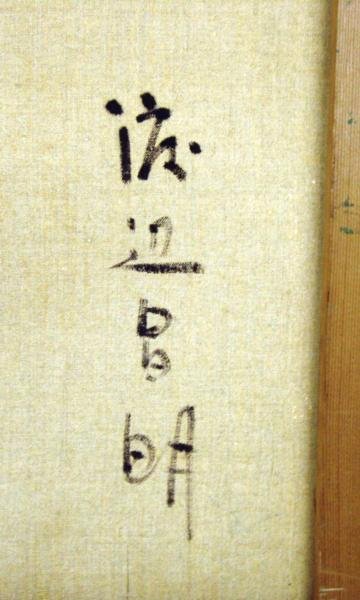 渡辺昌明